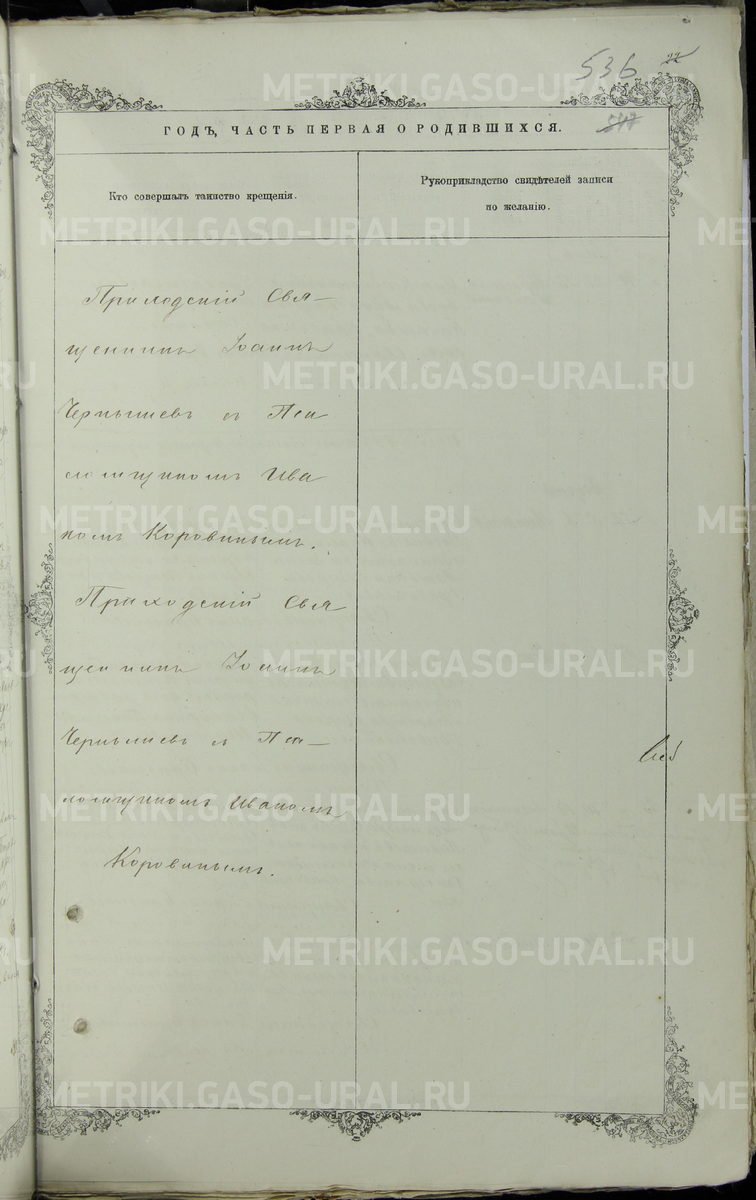 536 22
547
ГОДЪ, ЧАСТЬ ПЕРВАЯ О РОДИВШИХСЯ.
Кто совершалъ таинство крещенія.
Рукоприкладство свидѣтелей записи
по желанію.
Приходскій Свя–
щенникъ Іоаннъ
Чернышевъ съ Пса
ломщикомъ Ива
номъ Коровинымъ.
Приходскій Свя
щенникъ Іоаннъ
Чернышевъ съ Пса–
ломщикомъ Иваномъ
Коровинымъ.
METRIKI.GASO-URAL.RU